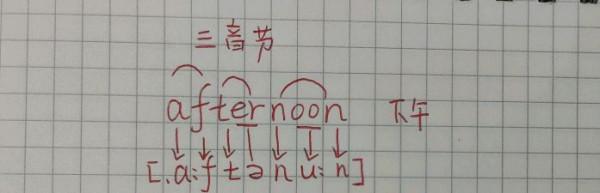 三音节
afternoon 下午
[ˌɑ:ftənu:n]